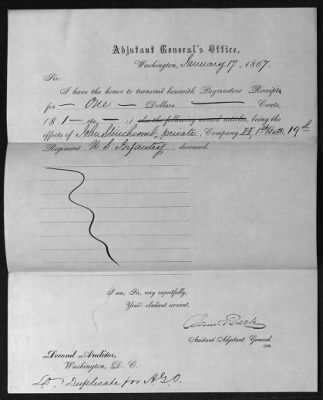 Adjutant General's Office,
Washington, January 17, 1867.
Sir:
I have the honor to transmit herewith Paymasters Receipts
for — One — Dollars — Cents,
($ 1 —) also the following named articles, being the
effects of private, Company 1st Batt. 19th
Regiment U S Infantry, deceased.
I am, Sir, very respectfully,
Your obedient servant,
Assistant Adjutant General.
Second Auditor,
Washington, D. C.
Duplicate for A.G.O.